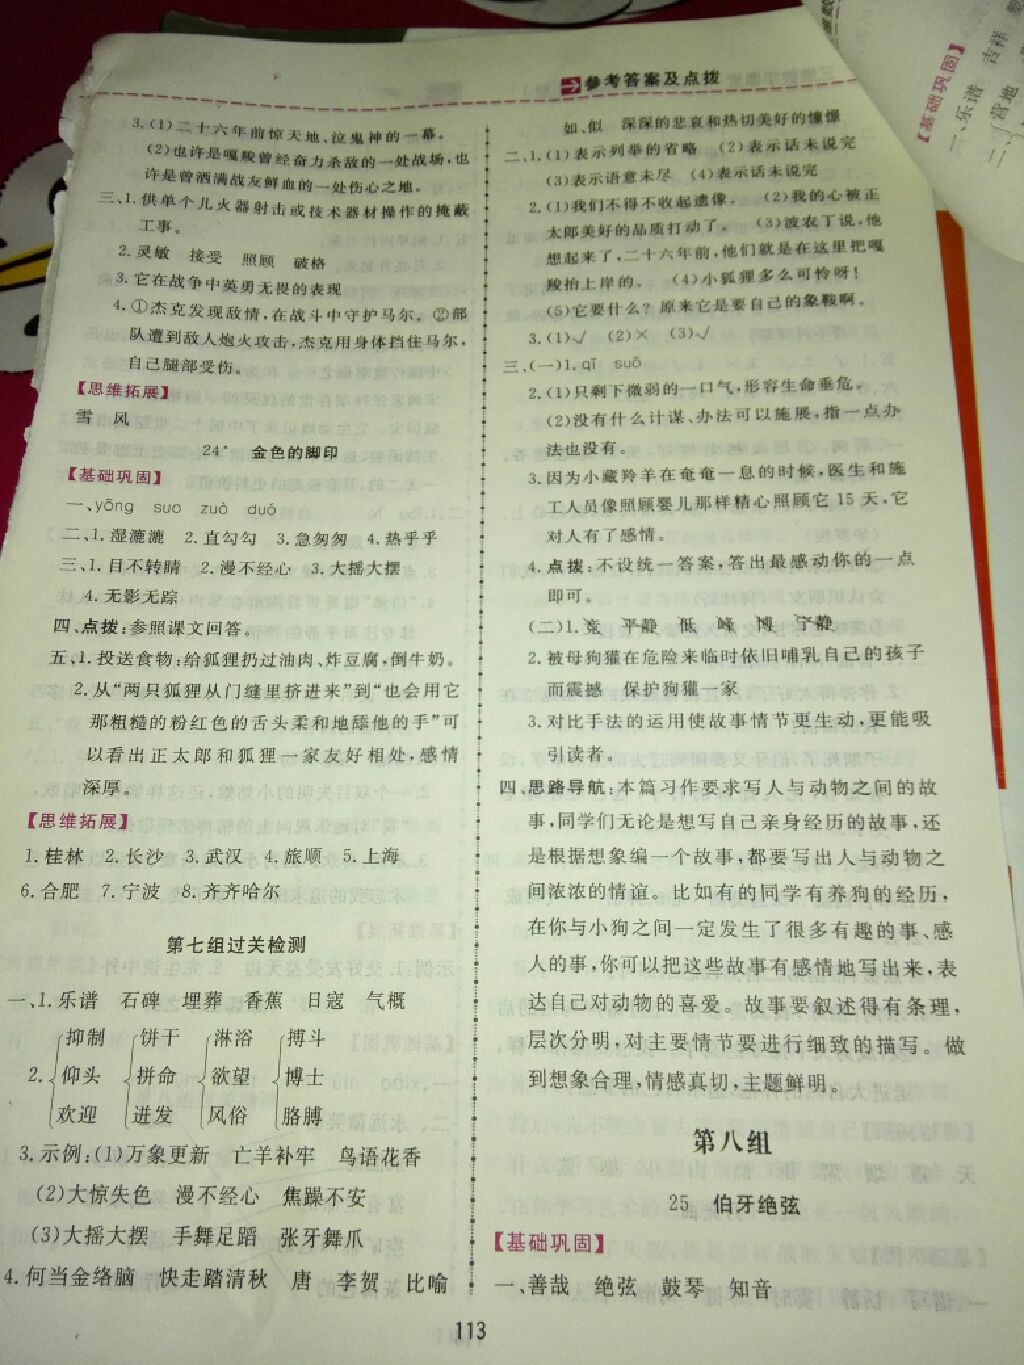 参考答案及点拨
3.(1)二十六年前惊天地、泣鬼神的一幕。
(2)也许是嘎羧曾经奋力杀敌的一处战场,也
许是曾洒满战友鲜血的一处伤心之地。
三、1.供单个儿火器射击或技术器材操作的掩蔽
工事。
2.灵敏 接受 照顾 破格
3.它在战争中英勇无畏的表现
4.①杰克发现敌情,在战斗中守护马尔。②部
队遭到敌人炮火攻击,杰克用身体挡住马尔,
自己腿部受伤。
【思维拓展】
雪 风
24* 金色的脚印
【基础巩固】
一、yōng suo zuò duó
二、1.湿漉漉 2.直勾勾 3.急匆匆 4.热乎乎
三、1.目不转睛 2.漫不经心 3.大摇大摆
4.无影无踪
四、点拨:参照课文回答。
五、1.投送食物:给狐狸扔过油肉、炸豆腐,倒牛奶。
2.从“两只狐狸从门缝里挤进来”到“也会用它
那粗糙的粉红色的舌头柔和地舔他的手”可
以看出正太郎和狐狸一家友好相处,感情
深厚。
【思维拓展】
1.桂林 2.长沙 3.武汉 4.旅顺 5.上海
6.合肥 7.宁波 8.齐齐哈尔
第七组过关检测
一、1.乐谱 石碑 埋葬 香蕉 日寇 气概
抑制 饼干 淋浴 搏斗
2. 仰头 拼命 欲望 博士
欢迎 迸发 风俗 胳膊
3.示例:(1)万象更新 亡羊补牢 鸟语花香
(2)大惊失色 漫不经心 焦躁不安
(3)大摇大摆 手舞足蹈 张牙舞爪
4.何当金络脑 快走踏清秋 唐 李贺 比喻
如、似 深深的悲哀和热切美好的憧憬
二、1.(1)表示列举的省略 (2)表示话未说完
(3)表示语意未尽 (4)表示话未说完
2.(1)我们不得不收起遗像。 (2)我的心被正
太郎美好的品质打动了。 (3)波农丁说,他
想起来了,二十六年前,他们就是在这里把嘎
羧抬上岸的。 (4)小狐狸多么可怜呀!
(5)它要什么?原来它是要自己的象鞍啊。
3.(1)√ (2)× (3)√
三、(一)1.qī suǒ
2.(1)只剩下微弱的一口气,形容生命垂危。
(2)没有什么计谋、办法可以施展,指一点办
法也没有。
3.因为小藏羚羊在奄奄一息的时候,医生和施
工人员像照顾婴儿那样精心照顾它15天,它
对人有了感情。
4.点拨:不设统一答案,答出最感动你的一点
即可。
(二)1.竞 平静 低 峰 博 宁静
2.被母狗獾在危险来临时依旧哺乳自己的孩子
而震撼 保护狗獾一家
3.对比手法的运用使故事情节更生动,更能吸
引读者。
四、思路导航:本篇习作要求写人与动物之间的故
事,同学们无论是想写自己亲身经历的故事,还
是根据想象编一个故事,都要写出人与动物之
间浓浓的情谊。比如有的同学有养狗的经历,
在你与小狗之间一定发生了很多有趣的事、感
人的事,你可以把这些故事有感情地写出来,表
达自己对动物的喜爱。故事要叙述得有条理,
层次分明,对主要情节要进行细致的描写。做
到想象合理,情感真切,主题鲜明。
第八组
25 伯牙绝弦
【基础巩固】
一、善哉 绝弦 鼓琴 知音
113
【基础巩固】
一、乐谱 吉祥
二、√营地